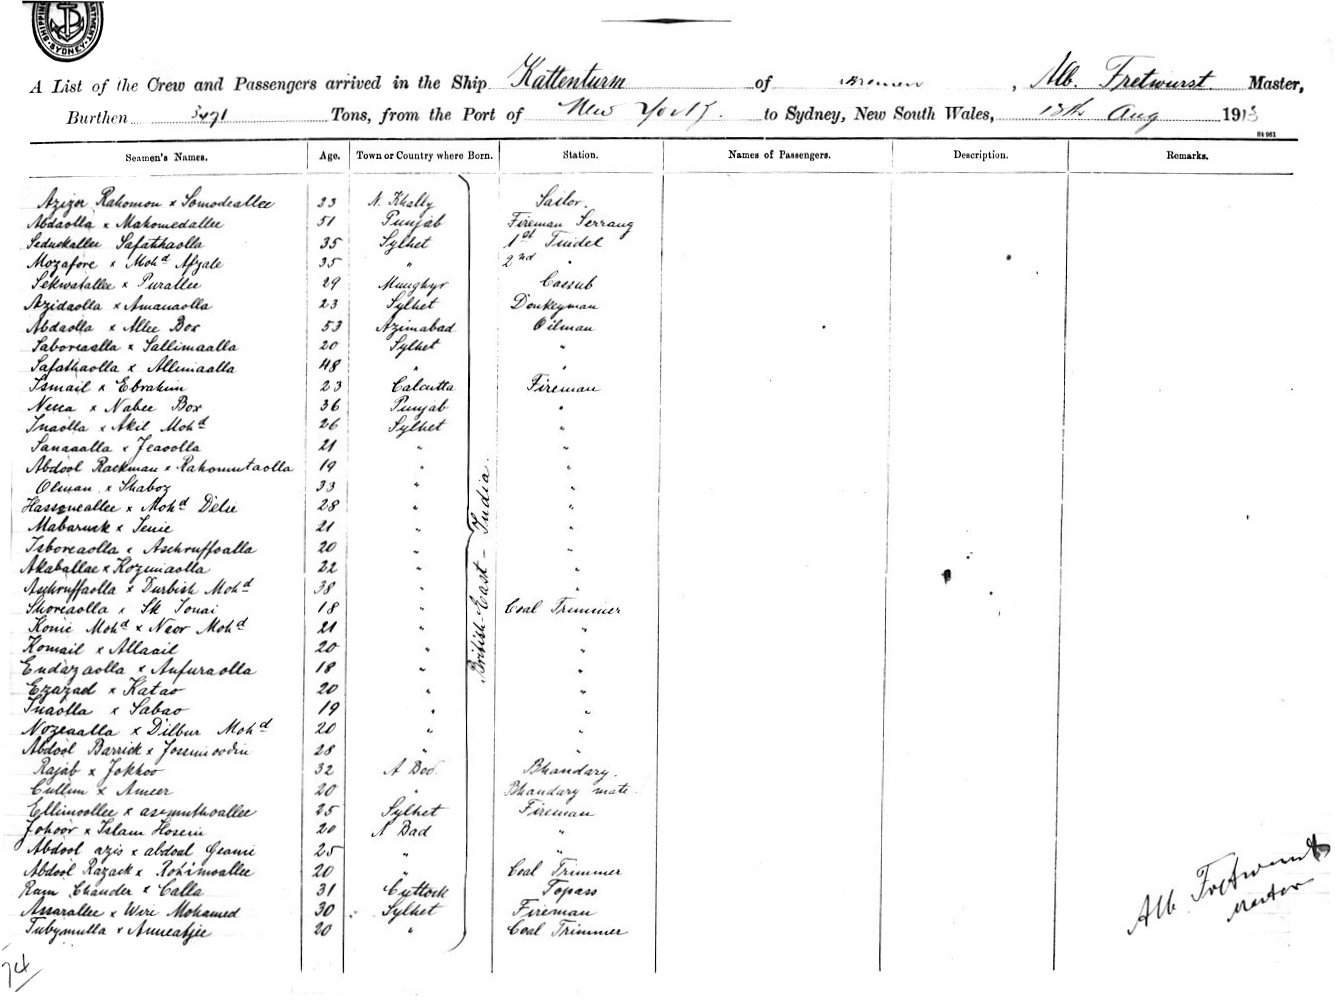 SHIPPING DEPARTMENT SYDNEY
A List of the Crew and Passengers arrived in the Ship Kattenturm of Bremen, Alb. Fretwurst Master,
Burthen 3471 Tons, from the Port of New York to Sydney, New South Wales, 18th Aug 1913
St 961
Seamen's Names. Age. Town or Country where Born. Station. Names of Passengers. Description. Remarks.
Azizor Rahomon x Somodeallee 33 N. Khally Sailor.
Abdaolla x Mahomedallee 51 Punjab Fireman Serrang
Seduckallee Safathaolla 35 Sylhet 1st Tindel
Mozafore x Mohd Afzale 35 " 2nd "
Sekwatallee x Purallee 29 Munghyr Cassub
Azidaolla x Amanaolla 23 Sylhet Donkeyman
Abdaolla x Allee Box 53 Azimabad Oilman
Saboreaalla x Sallimaalla 20 Sylhet "
Safathaolla x Allimaalla 48 " "
Ismail x Ebrahim 23 Calcutta Fireman
Nesca x Nabee Box 36 Punjab "
Inaolla x Akil Mohd 26 Sylhet "
Sanaaalla x Jeaoolla 21 " "
Abdool Rackman x Rahomutaolla 19 " "
Olman x Shaboz 33 " "
Hassneallee x Mohd Delie 28 " "
Mabaruck x Tenie 21 " "
Isboreaolla x Aschruffoalla 20 " "
Akaballae x Kozimaolla 22 " "
Aschruffaolla x Durbish Mohd 38 " "
Shoreaolla x Sk Tonai 18 " Coal Trimmer
Konie Mohd x Naor Mohd 21 " "
Komail x Allaail 20 " "
Endazaolla x Anfuraolla 18 " "
Ezazad x Katao 20 " "
Inaolla x Sabao 19 " "
Nozeaalla x Dilbur Mohd 20 " "
Abdool Barrick x Jossimoodin 28 " "
Rajab x Jokhoo 32 A Bod. Bhandary.
Cullim x Ameer 20 " Bhandary mate
Ellimoollee x asemuthoallee 25 Sylhet Fireman
Johoor x Islam Hosein 20 A Bad "
Abdool azis x abdoal Geanie 25 " "
Abdool Razack x Rohimoallee 20 " Coal Trimmer
Ram Chander x Calla 31 Cuttock Topass
Assarallee x Wire Mohamed 30 Sylhet Fireman
Tubymulla x Anneatjee 20 " Coal Trimmer
British East-India.
Alb. Fretwurst
Master
74